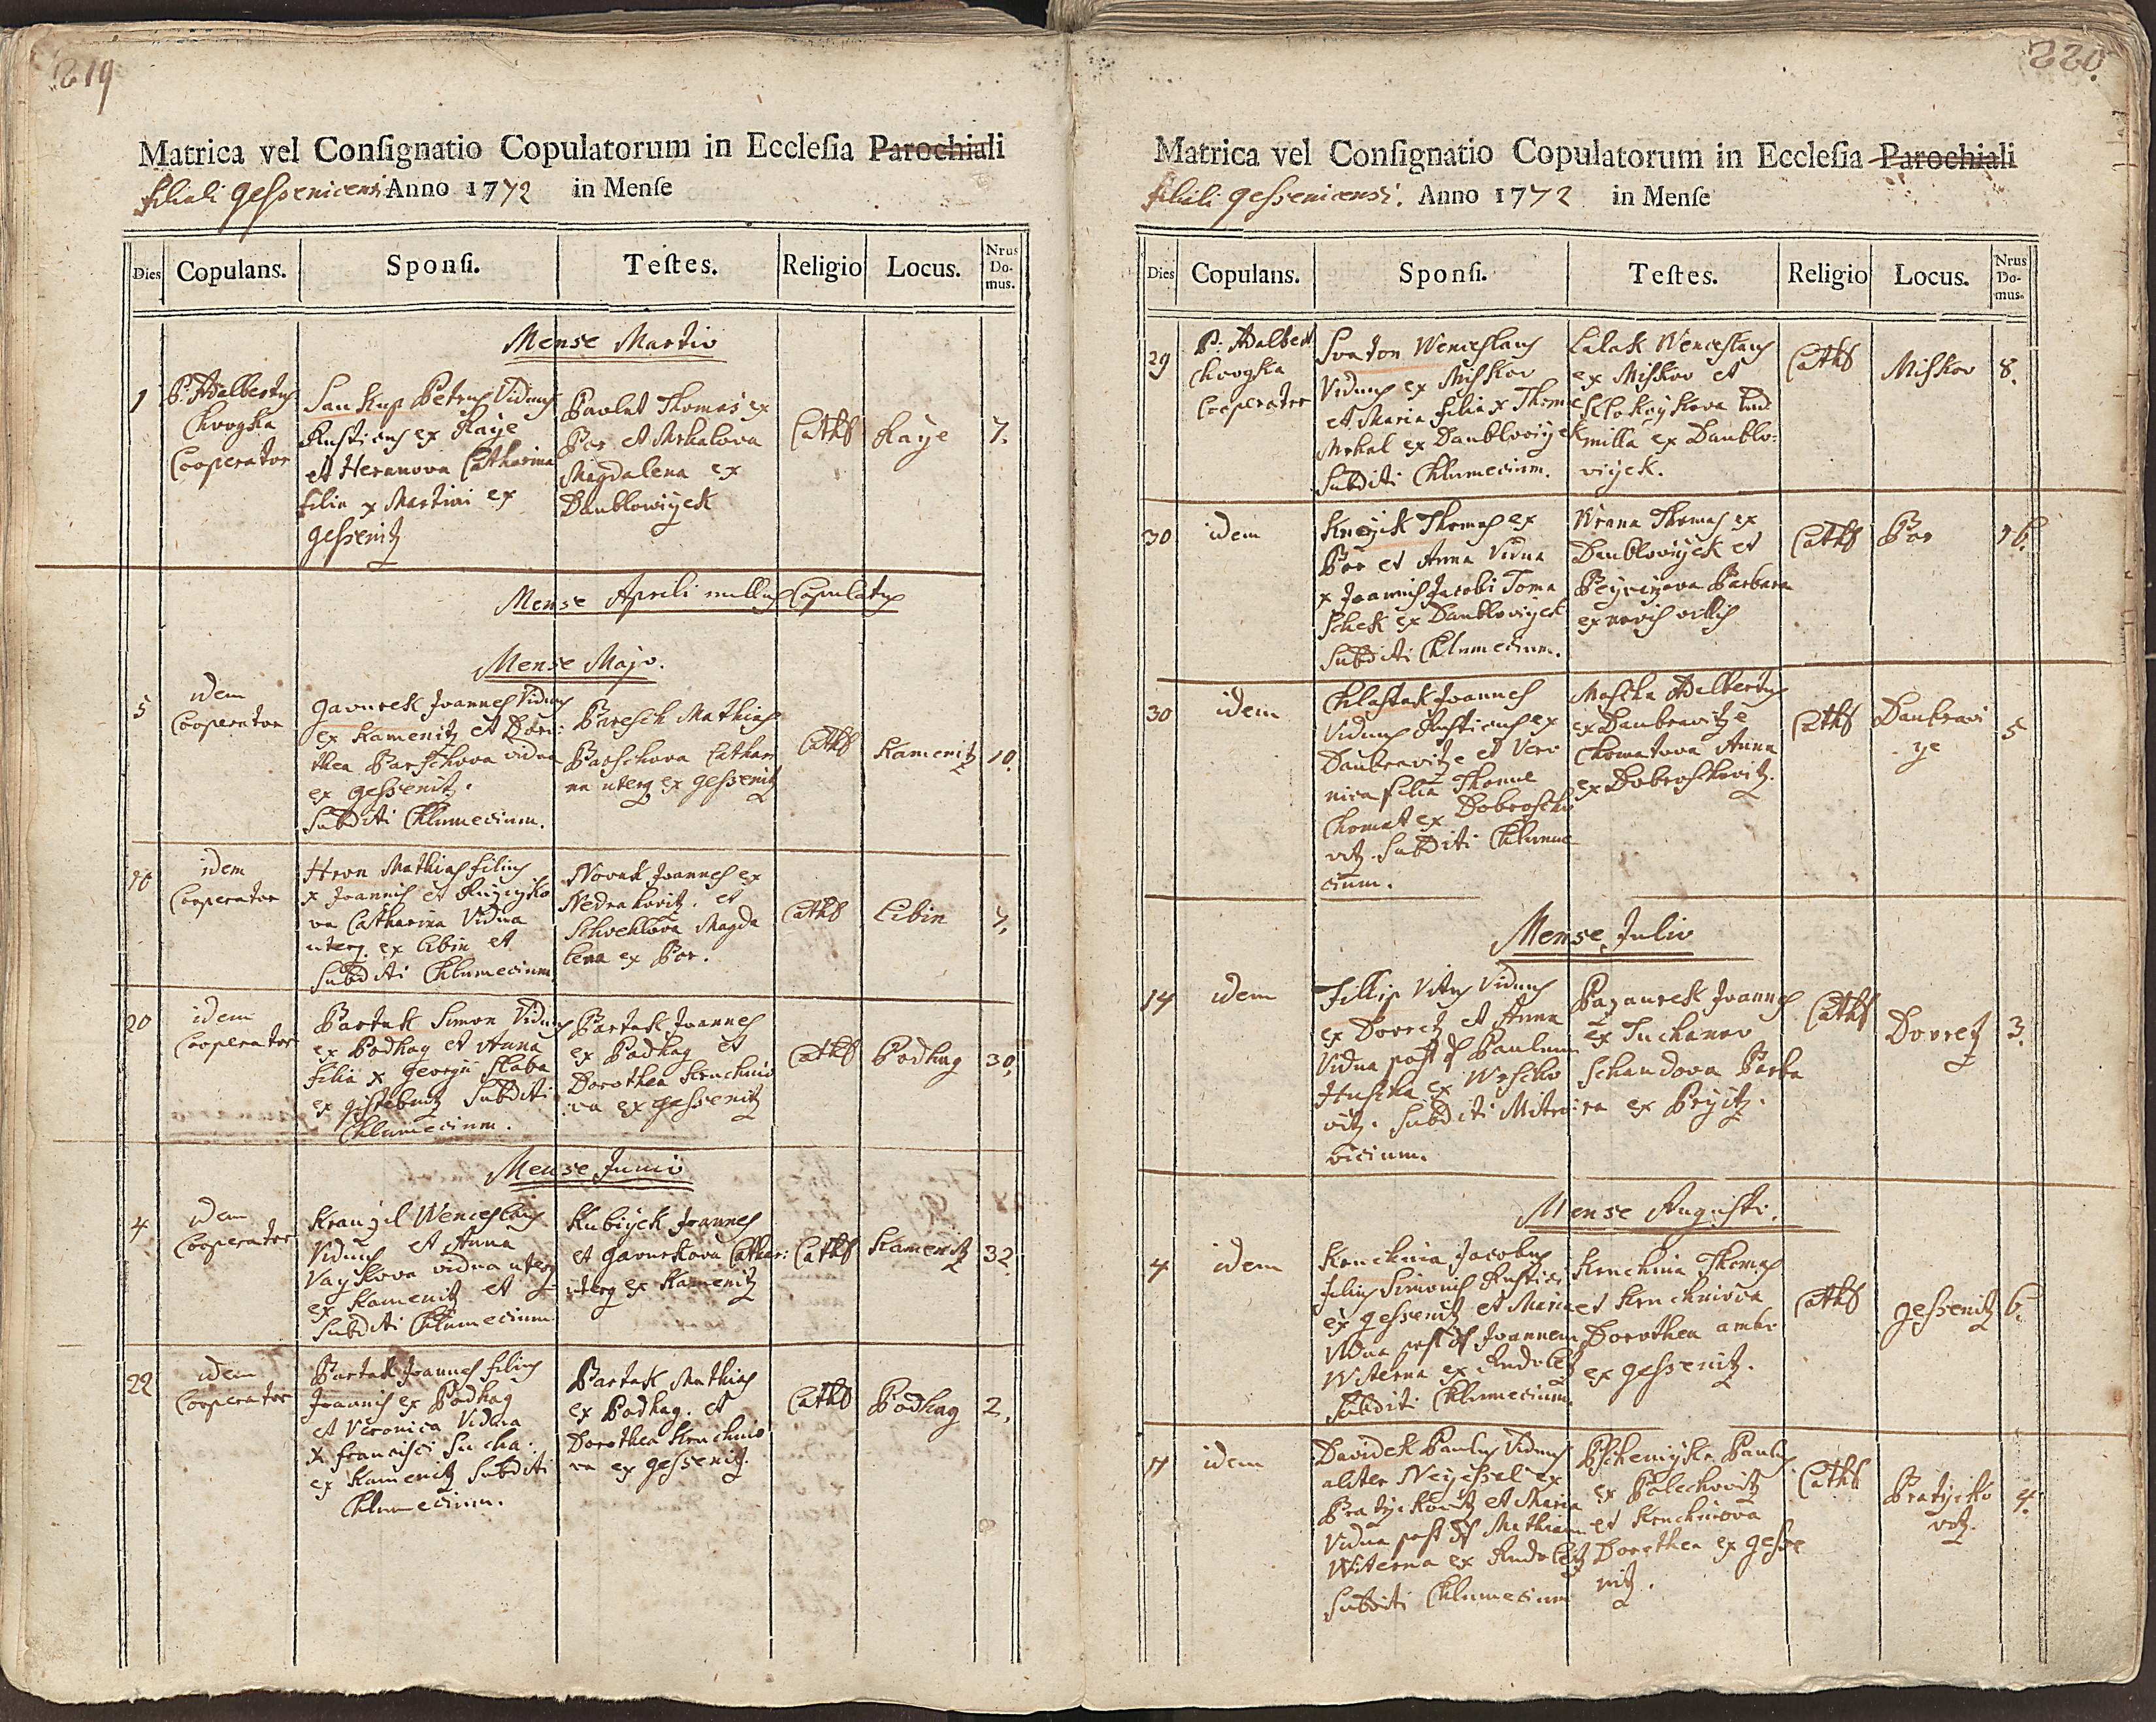 219
Matrica vel Consignatio Copulatorum in Ecclesia Parochiali
filiali Gessenicensi Anno 1772 in Mense
Dies Copulans. Sponsi. Testes. Religio Locus. Nrus Domus.
Mense Martio
1
P: Adalbertus
Chvogka
Cooperator
Sauskup Petrus Viduus
Rusticus ex Raye
et Heranova Catharina
filia x Martini ex
Gessenitz
Pavlat Thomas ex
Bor et Mrkalova
Magdalena ex
Daublowiyek
Cath
Raye
7.
Mense Aprili nullus Copulatus
Mense Majo.
5
idem
Cooperator
Gavurek Joannes Viduus
ex Kamenitz et Doro:
thea Barschova vidua
ex Gessenitz.
Subditi Chlumecium.
Buresch Mathias
Barschova Cathari
na uterq ex Gessenitz
Cath
Kamenitz
10.
16
idem
Cooperator
Hron Mathias filius
x Joannis et
va Catharina Vidua
uterq. ex Libin et
Subditi Chlumecium
Novak Joannes ex
Nedrakovitz. et
Schvehlova Magda
lena ex Bor.
Cath
Libin
7.
20
idem
Cooperator
Bartak Simon Viduus
ex Podhag et Anna
filia x Georgii Slaba
ex Gistebnitz Subditi
Chlumecium.
Bartak Joannes
ex Podhag et
Dorothea Kruchnio
va ex Gessenitz
Cath
Podhag
30.
Mense Junio
4
idem
Cooperator
Krauzil Wenceslaus
Viduus et Anna
Vayskova vidua uterq
ex Kamenitz et
Subditi Chlumecium
Kubiyek Joannes
et Gavurkova Cathar:
uterq ex Kamenitz
Cath
Kamenitz
32.
22
idem
Cooperator
Bartak Joannes filius
Joannis ex Podhag
et Veronica Vidua
x Francisci Sucha.
ex Kamenitz Subditi
Chlumecium.
Bartak Mathias
ex Podhag. et
Dorothea Kruchnio
va ex Gessenitz.
Cath
Podhag
2.
220.
Matrica vel Consignatio Copulatorum in Ecclesia Parochiali
filiali Gessenicensi. Anno 1772 in Mense
Dies Copulans. Sponsi. Testes. Religio Locus. Nrus Domus.
29
P. Adalbert
Chvogka
Cooperator
Svaton Wenceslaus
Viduus ex Miskov
et Maria filia x Thome
Mrkal ex Daublowiyek
Subditi Chlumecium.
Lalak Wenceslaus
ex Miskov et
Lud
milla ex Daublo:
wiyek.
Cath
Miskov
8.
30
idem
Knezik Thomas ex
Bor et Anna Vidua
x Joannis Jacobi Toma
schek ex Daublowiyek
Subditi Chlumecium.
Wrana Thomas ex
Daublowiyek et
Barbara
ex novis villis
Cath
Bor
16.
30
idem
Chlastak Joannes
Viduus Rusticus ex
Daubravitze et Vero
nica filia Thome
Chomat ex Dobroschko
vitz. Subditi Chlume
cium.
Moscha Adalbertus
ex Daubravitze
Chomatova Anna
ex Dobroskovitz.
Cath
Daubravi
ze
5
Mense Julio
14
idem
Fillip Vitus Viduus
ex Dvoretz et Anna
Vidua post df Paulum
Huscha ex Wrscho
vitz. Subditi Mitro:
vicium.
Bazaurek Joannes
ex Suchanov
Schandova Barba
ra ex Bzyitz.
Cath
Dvoretz
3.
Mense Augusti.
4
idem
Kruchnia Jacobus
filius Simonis Rustici
ex Gessenitz et Maria
Vidua post df Joannem
Witerna ex Rudoltz
Subditi Chlumecium
Kruchnia Thomas
et Kruchniova
Dorothea ambo
ex Gessenitz.
Cath
Gessenitz
6.
11
idem
Davidek Paulus Viduus
aliter Neyessel ex
Bratzickovitz et Maria
Vidua post df Mathiam
Witerna ex Rudoltz
Subditi Chlumecium
Paulus
ex Balechovitz
et Kruchniova
Dorothea ex Gesse
nitz.
Cath
Bratzicko
vitz.
4.